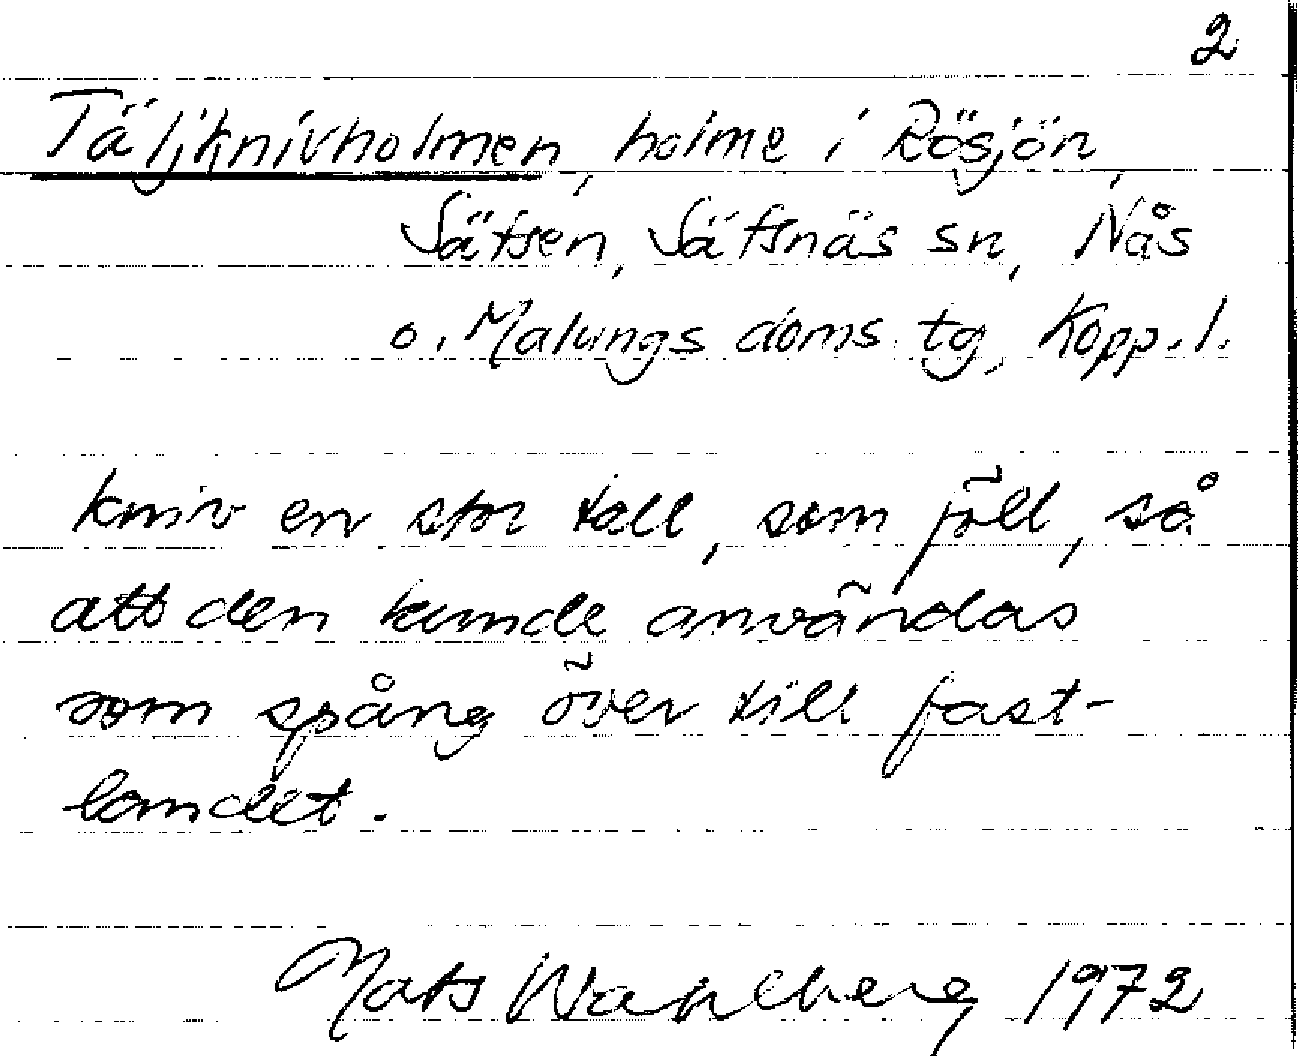 2
Täljknivholmen, holme i Rösjön,
Sätsen, Säfsnäs sn, Nås
o. Malungs doms. tg, Kopp. l.
kniv en stor tall, som föll, så
att den kunde användas
som spång över till fast-
landet.
Mats Wahlberg 1972